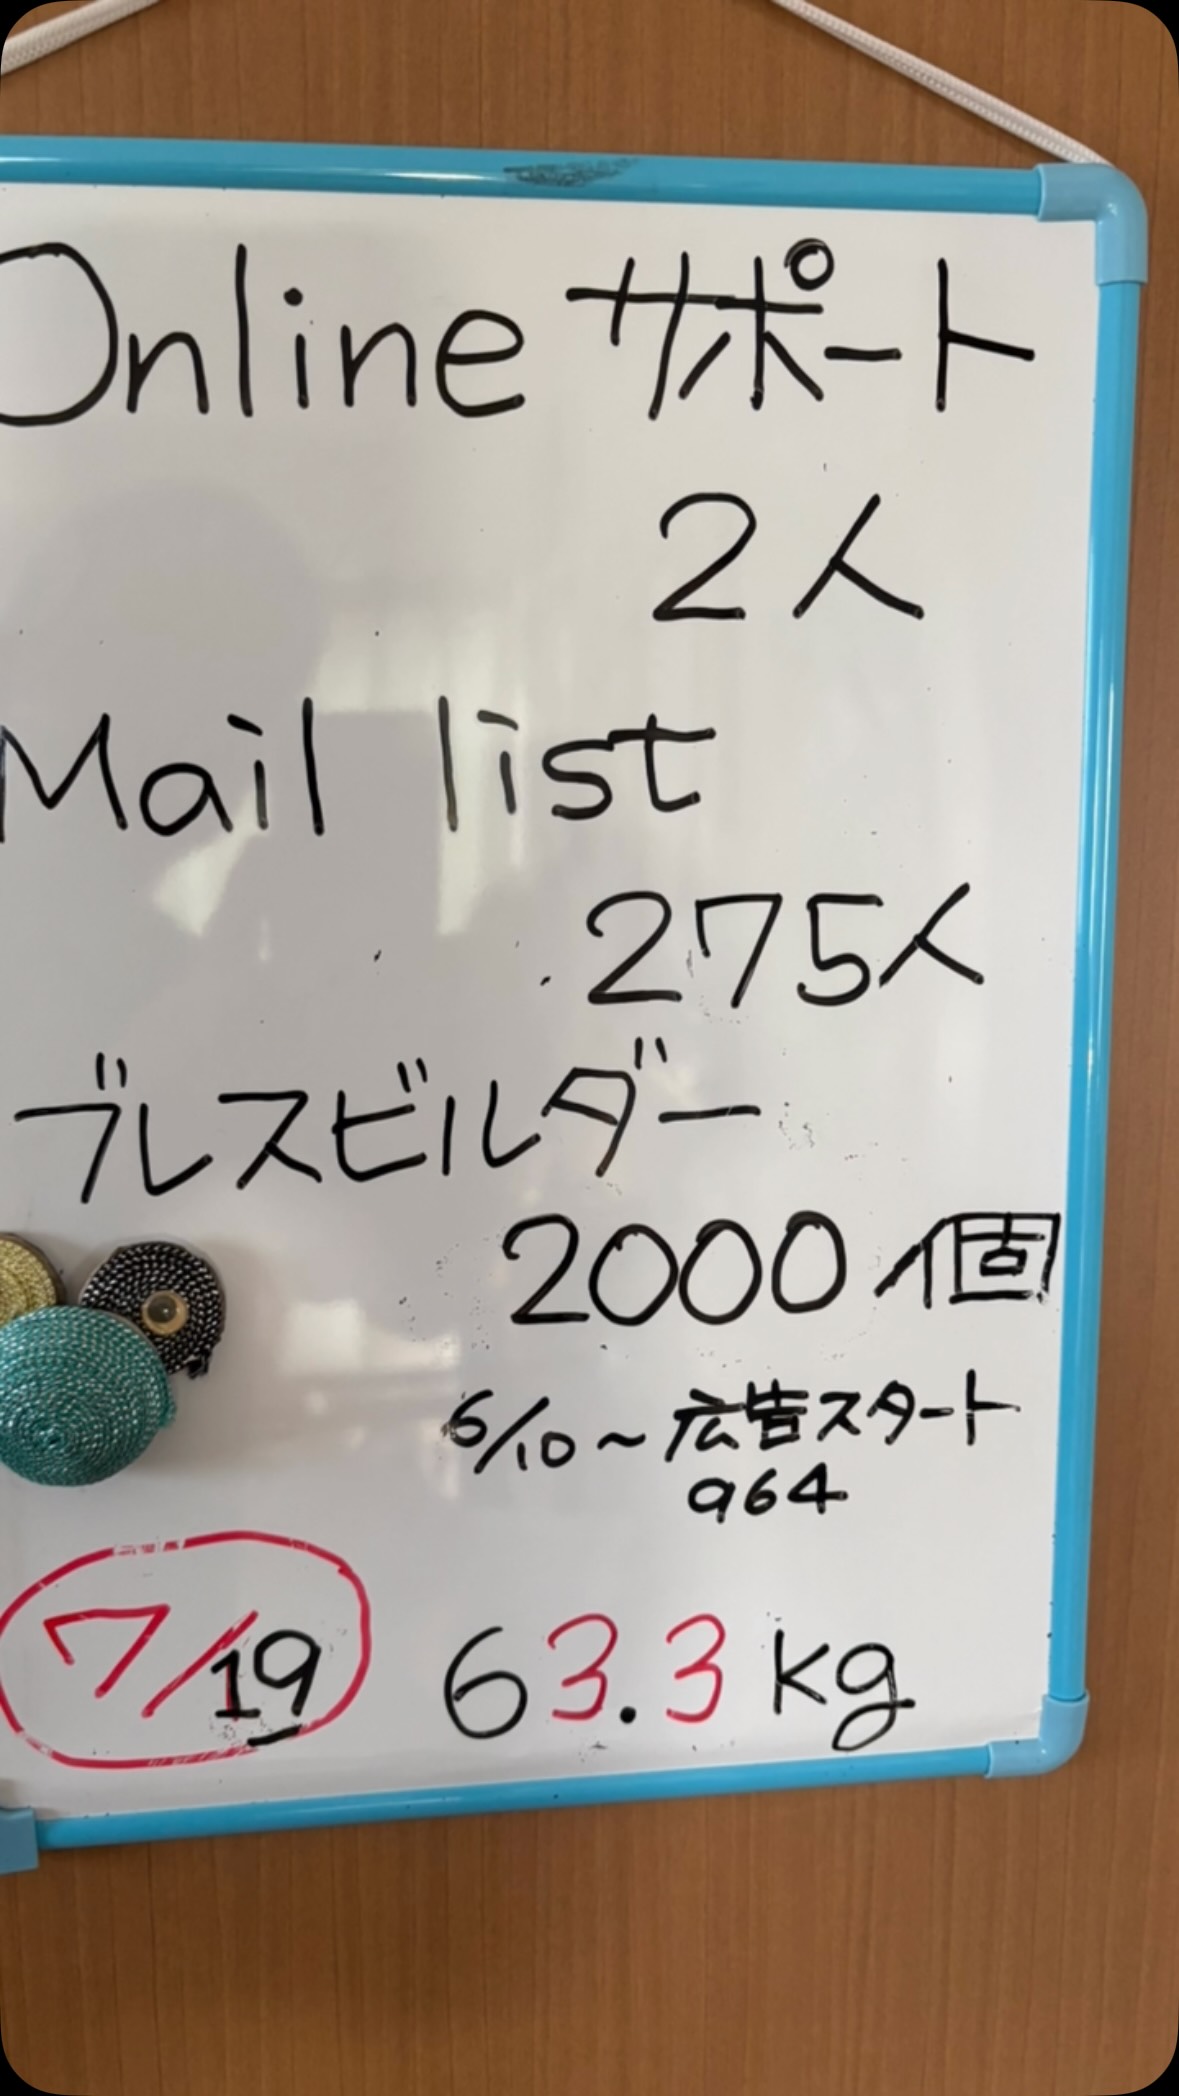 Online サポート
2人
Mail list
275人
ブレスビルダー
2000個
6/10～広告スタート
964
7/19 63.3kg